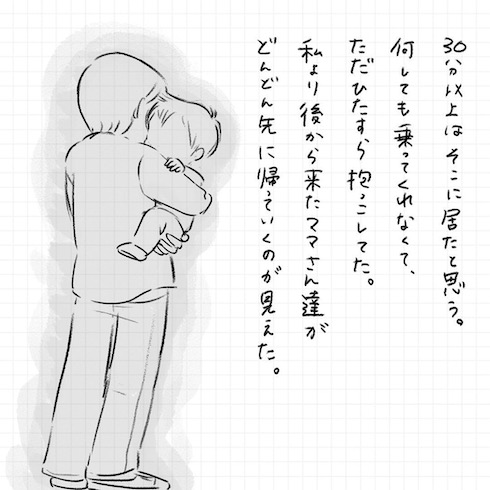 30分以上はそこに居たと思う。
何しても乗ってくれなくて、
ただひたすら抱っこしてた。
私より後から来たママさん達が
どんどん先に帰っていくのが見えた。